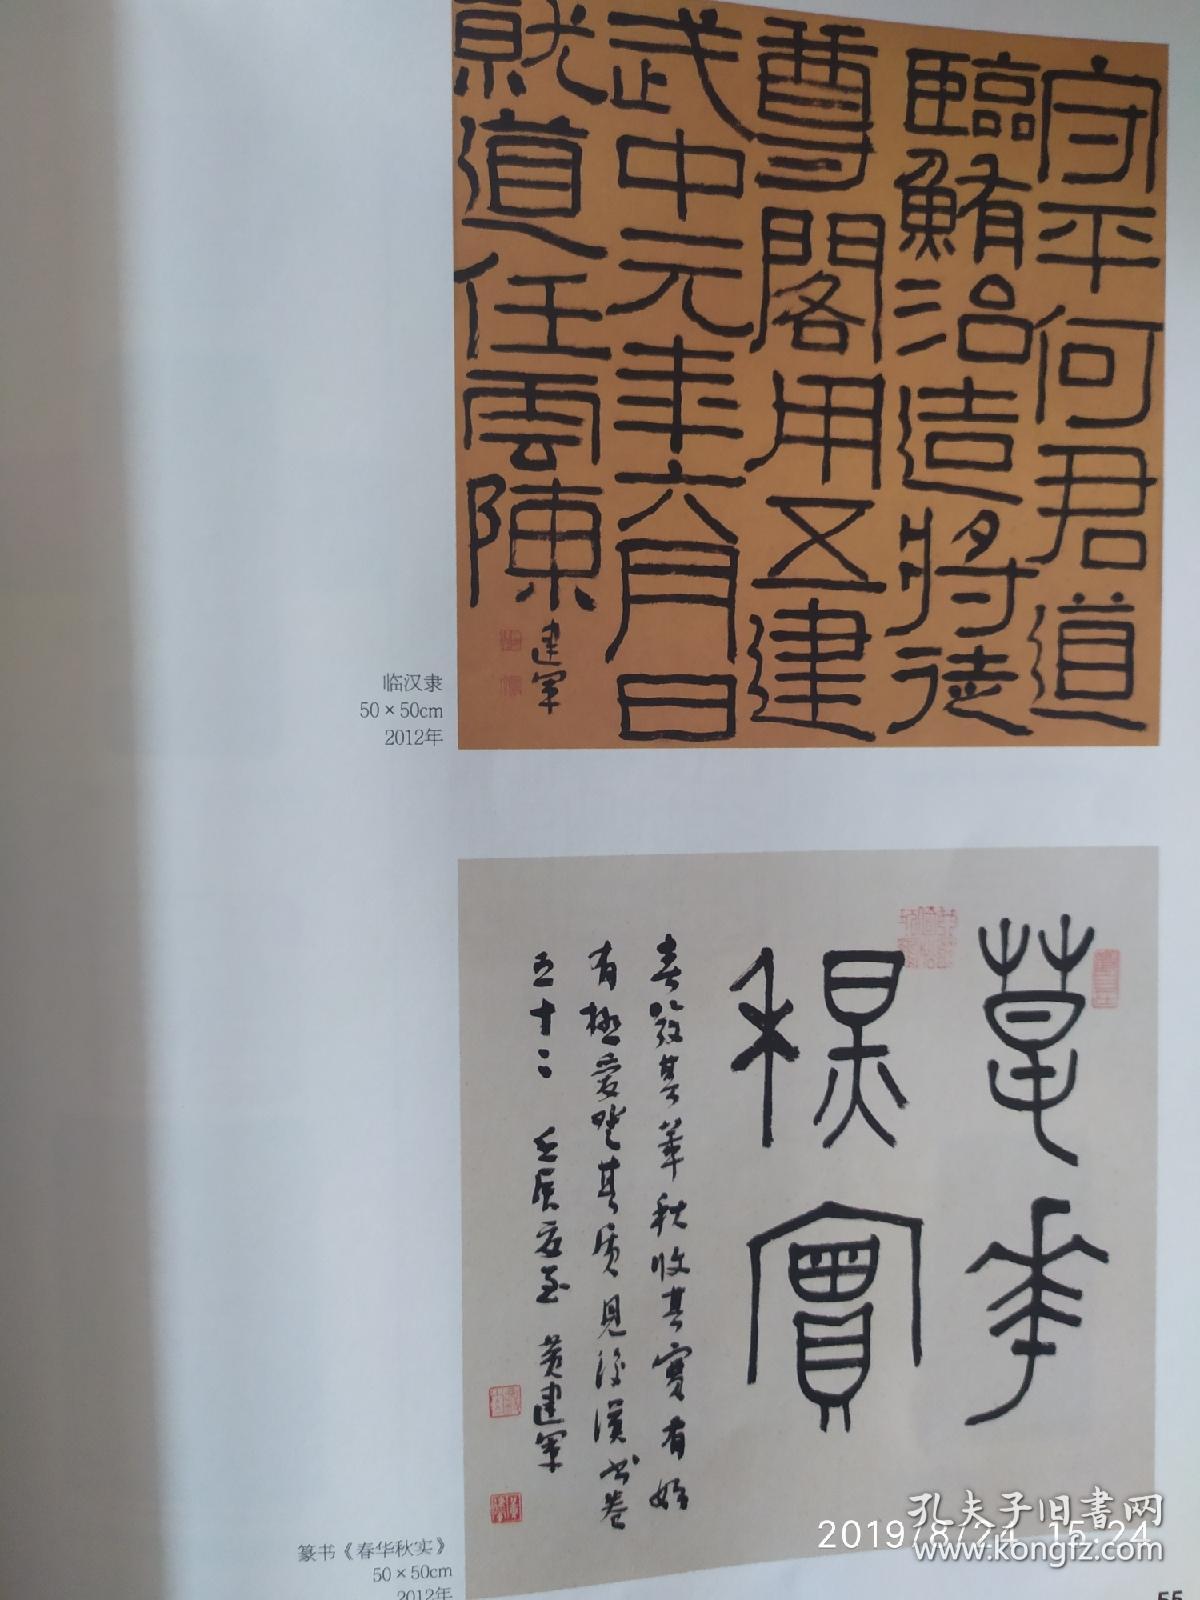 守平何君道
臨鮪治造將徒
尊閣用五建
武中元年六月日
就道任雲陳
建軍
临汉隶
50×50cm
2012年
萅華
秋實
春發其華秋收其實有始
有極愛登其質見後漢書卷
五十二 壬辰夏至 黄建軍
篆书《春华秋实》
50×50cm
2012年
55
2019/8/24 15:24
孔夫子旧書网
www.kongfz.com